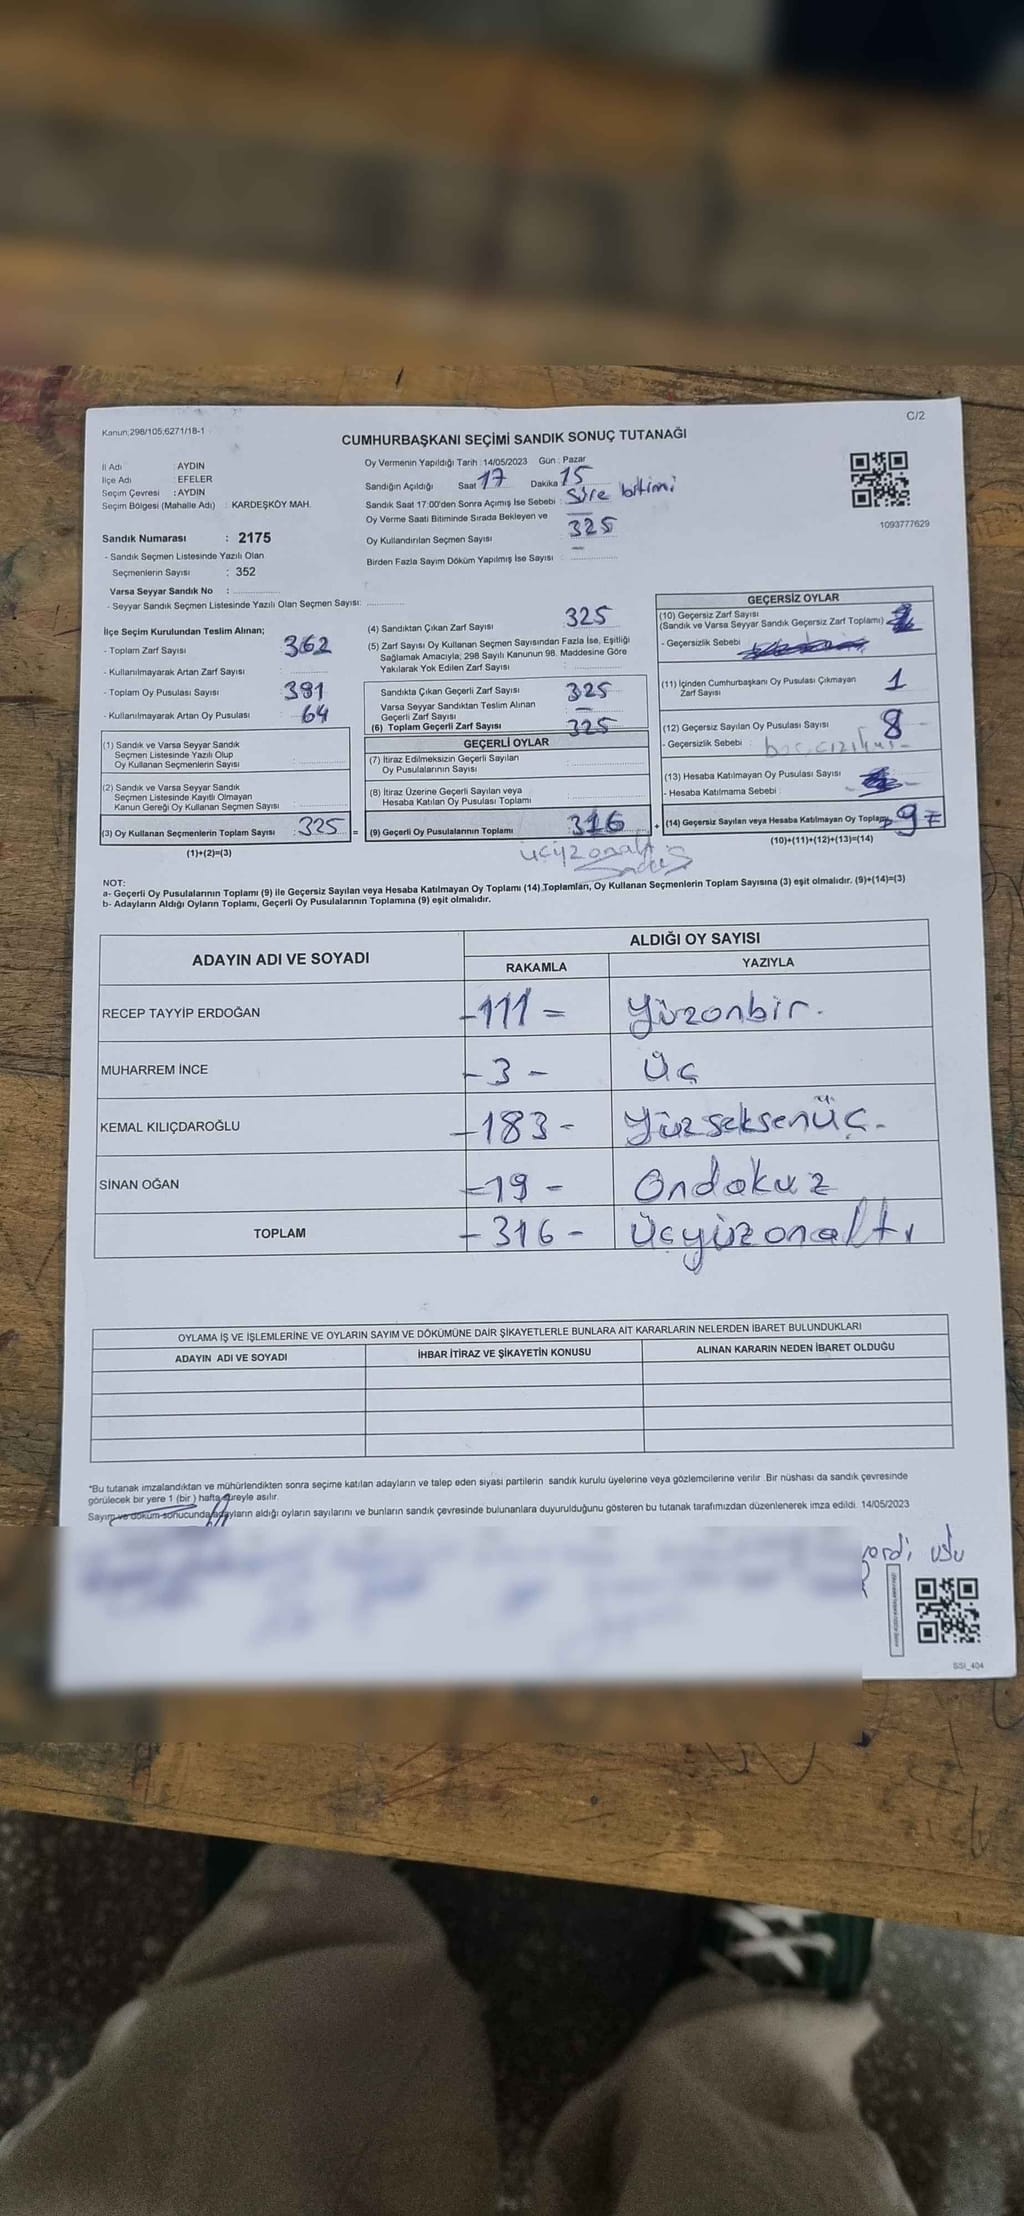 Kanun;298/105,6271/18-1
C/2
CUMHURBAŞKANI SEÇİMİ SANDIK SONUÇ TUTANAĞI
İl Adı : AYDIN
İlçe Adı : EFELER
Seçim Çevresi : AYDIN
Seçim Bölgesi (Mahalle Adı) : KARDEŞKÖY MAH.
Oy Vermenin Yapıldığı Tarih : 14/05/2023 Gün : Pazar
Sandığın Açıldığı Saat 17 Dakika 15
Sandık Saat 17:00'den Sonra Açımış İse Sebebi : Süre bitimi
Oy Verme Saati Bitiminde Sırada Bekleyen ve
Oy Kullandırılan Seçmen Sayısı 325
Birden Fazla Sayım Döküm Yapılmış İse Sayısı : –
1093777629
Sandık Numarası : 2175
- Sandık Seçmen Listesinde Yazılı Olan
Seçmenlerin Sayısı : 352
Varsa Seyyar Sandık No :
- Seyyar Sandık Seçmen Listesinde Yazılı Olan Seçmen Sayısı:
İlçe Seçim Kurulundan Teslim Alınan;
- Toplam Zarf Sayısı : 362
- Kullanılmayarak Artan Zarf Sayısı
- Toplam Oy Pusulası Sayısı : 391
- Kullanılmayarak Artan Oy Pusulası 64
(1) Sandık ve Varsa Seyyar Sandık
Seçmen Listesinde Yazılı Olup
Oy Kullanan Seçmenlerin Sayısı
(2) Sandık ve Varsa Seyyar Sandık
Seçmen Listesinde Kayıtlı Olmayan
Kanun Gereği Oy Kullanan Seçmen Sayısı
(3) Oy Kullanan Seçmenlerin Toplam Sayısı 325 =
(1)+(2)=(3)
(4) Sandıktan Çıkan Zarf Sayısı 325
(5) Zarf Sayısı Oy Kullanan Seçmen Sayısından Fazla İse, Eşitliği
Sağlamak Amacıyla; 298 Sayılı Kanunun 98. Maddesine Göre
Yakılarak Yok Edilen Zarf Sayısı
Sandıkta Çıkan Geçerli Zarf Sayısı 325
Varsa Seyyar Sandıktan Teslim Alınan
Geçerli Zarf Sayısı –
(6) Toplam Geçerli Zarf Sayısı 325
GEÇERLİ OYLAR
(7) İtiraz Edilmeksizin Geçerli Sayılan
Oy Pusulalarının Sayısı
(8) İtiraz Üzerine Geçerli Sayılan veya
Hesaba Katılan Oy Pusulası Toplamı
(9) Geçerli Oy Pusulalarının Toplamı 316 +
üçyüzonaltı
GEÇERSİZ OYLAR
(10) Geçersiz Zarf Sayısı
(Sandık ve Varsa Seyyar Sandık Geçersiz Zarf Toplamı)
- Geçersizlik Sebebi
(11) İçinden Cumhurbaşkanı Oy Pusulası Çıkmayan
Zarf Sayısı 1
(12) Geçersiz Sayılan Oy Pusulası Sayısı 8
- Geçersizlik Sebebi :
(13) Hesaba Katılmayan Oy Pusulası Sayısı
- Hesaba Katılmama Sebebi :
(14) Geçersiz Sayılan veya Hesaba Katılmayan Oy Toplamı 9
(10)+(11)+(12)+(13)=(14)
NOT:
a- Geçerli Oy Pusulalarının Toplamı (9) ile Geçersiz Sayılan veya Hesaba Katılmayan Oy Toplamı (14) Toplamları, Oy Kullanan Seçmenlerin Toplam Sayısına (3) eşit olmalıdır. (9)+(14)=(3)
b- Adayların Aldığı Oyların Toplamı, Geçerli Oy Pusulalarının Toplamına (9) eşit olmalıdır.
ADAYIN ADI VE SOYADI ALDIĞI OY SAYISI
RAKAMLA YAZIYLA
RECEP TAYYİP ERDOĞAN -111= Yüzonbir.
MUHARREM İNCE -3- Üç
KEMAL KILIÇDAROĞLU -183- Yüzseksenüç-
SİNAN OĞAN -19- Ondokuz
TOPLAM -316- Üçyüzonaltı
OYLAMA İŞ VE İŞLEMLERİNE VE OYLARIN SAYIM VE DÖKÜMÜNE DAİR ŞİKAYETLERLE BUNLARA AİT KARARLARIN NELERDEN İBARET BULUNDUKLARI
ADAYIN ADI VE SOYADI İHBAR İTİRAZ VE ŞİKAYETİN KONUSU ALINAN KARARIN NEDEN İBARET OLDUĞU
*Bu tutanak imzalandıktan ve mühürlendikten sonra seçime katılan adayların ve talep eden siyasi partilerin sandık kurulu üyelerine veya gözlemcilerine verilir. Bir nüshası da sandık çevresinde
görülecek bir yere 1 (bir) hafta süreyle asılır.
Sayım ve döküm sonucunda adayların aldığı oyların sayılarını ve bunların sandık çevresinde bulunanlara duyurulduğunu gösteren bu tutanak tarafımızdan düzenlenerek imza edildi. 14/05/2023
SSI_404